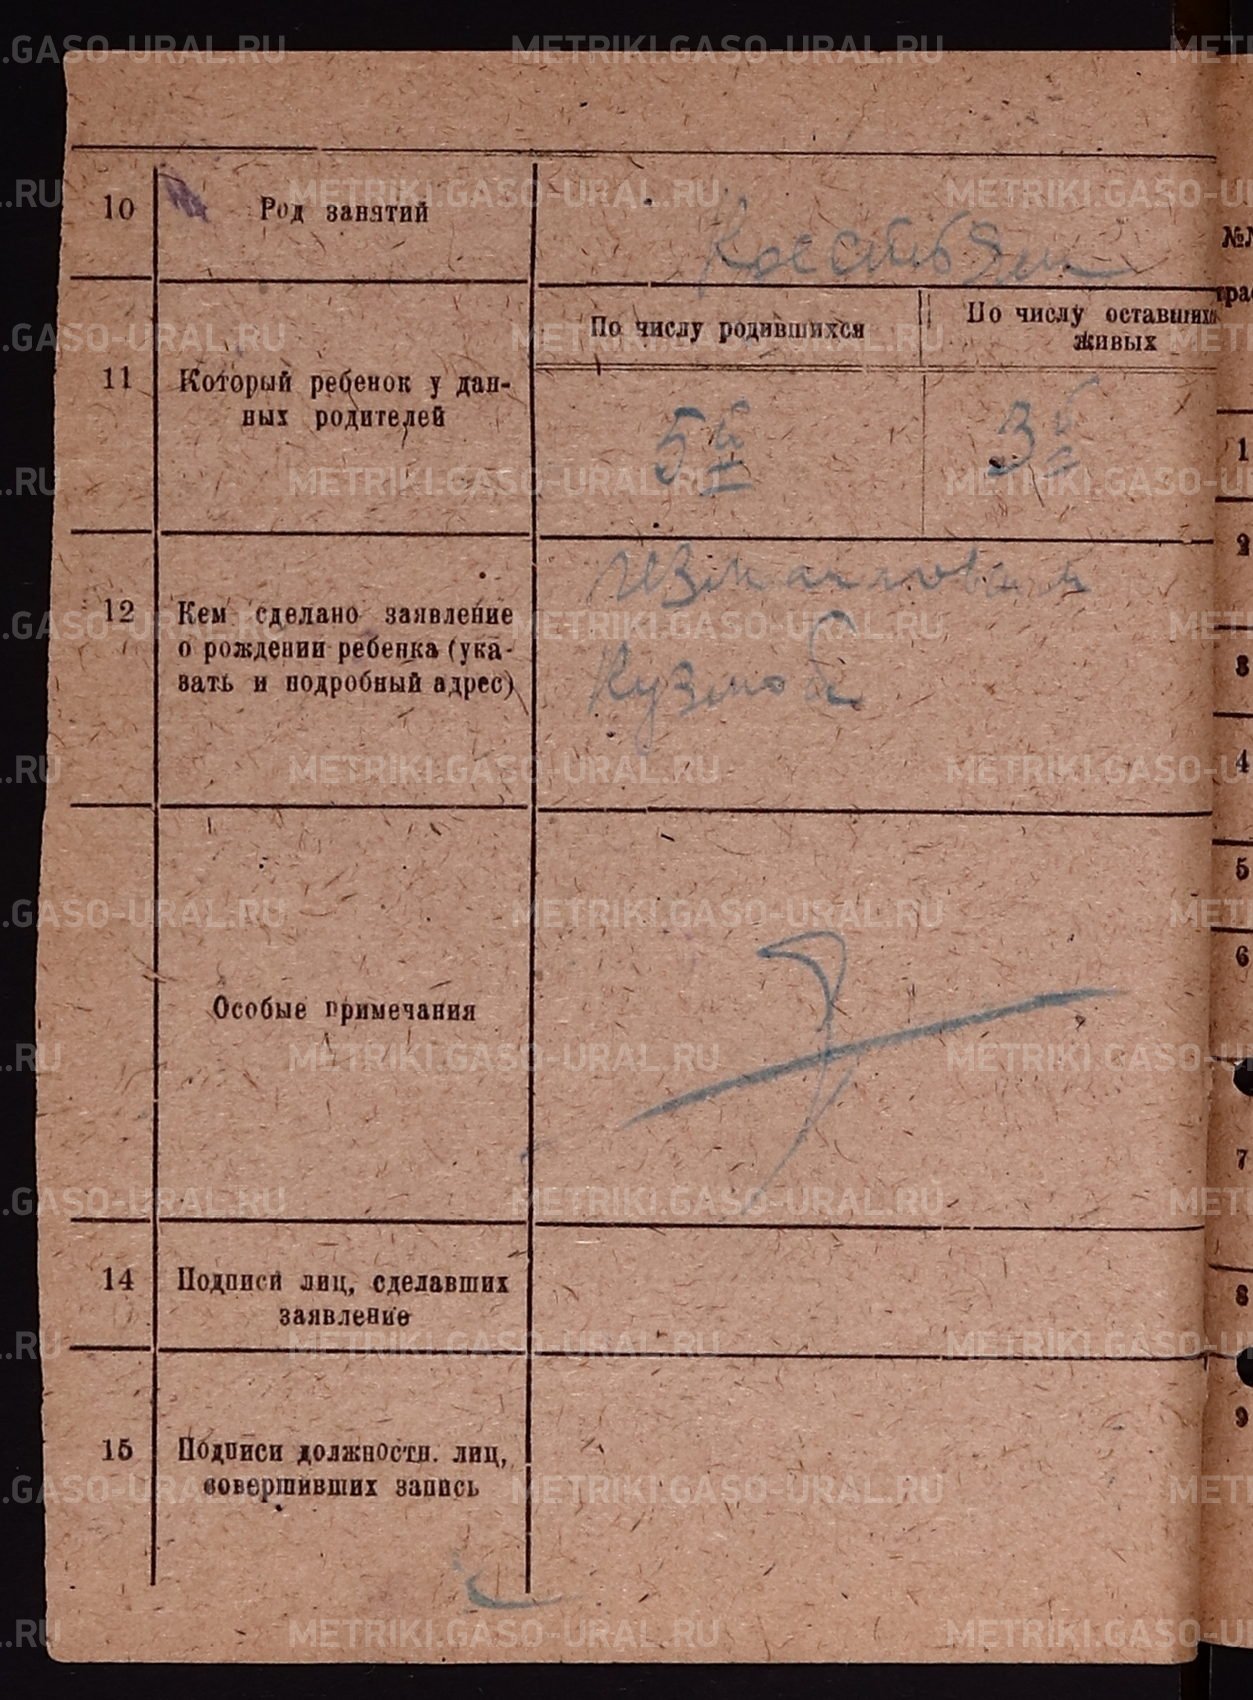 METRIKI.GASO-URAL.RU
10 Род занятий
№№
По числу родившихся
По числу оставшихся
живых
11 Который ребенок у дан-
ных родителей
5й
3й
12 Кем сделано заявление
о рождении ребенка (ука-
зать и подробный адрес)
Особые примечания
14 Подписи лиц, сделавших
заявление
15 Подписи должностн. лиц,
совершивших запись
1
2
3
4
5
6
7
8
9